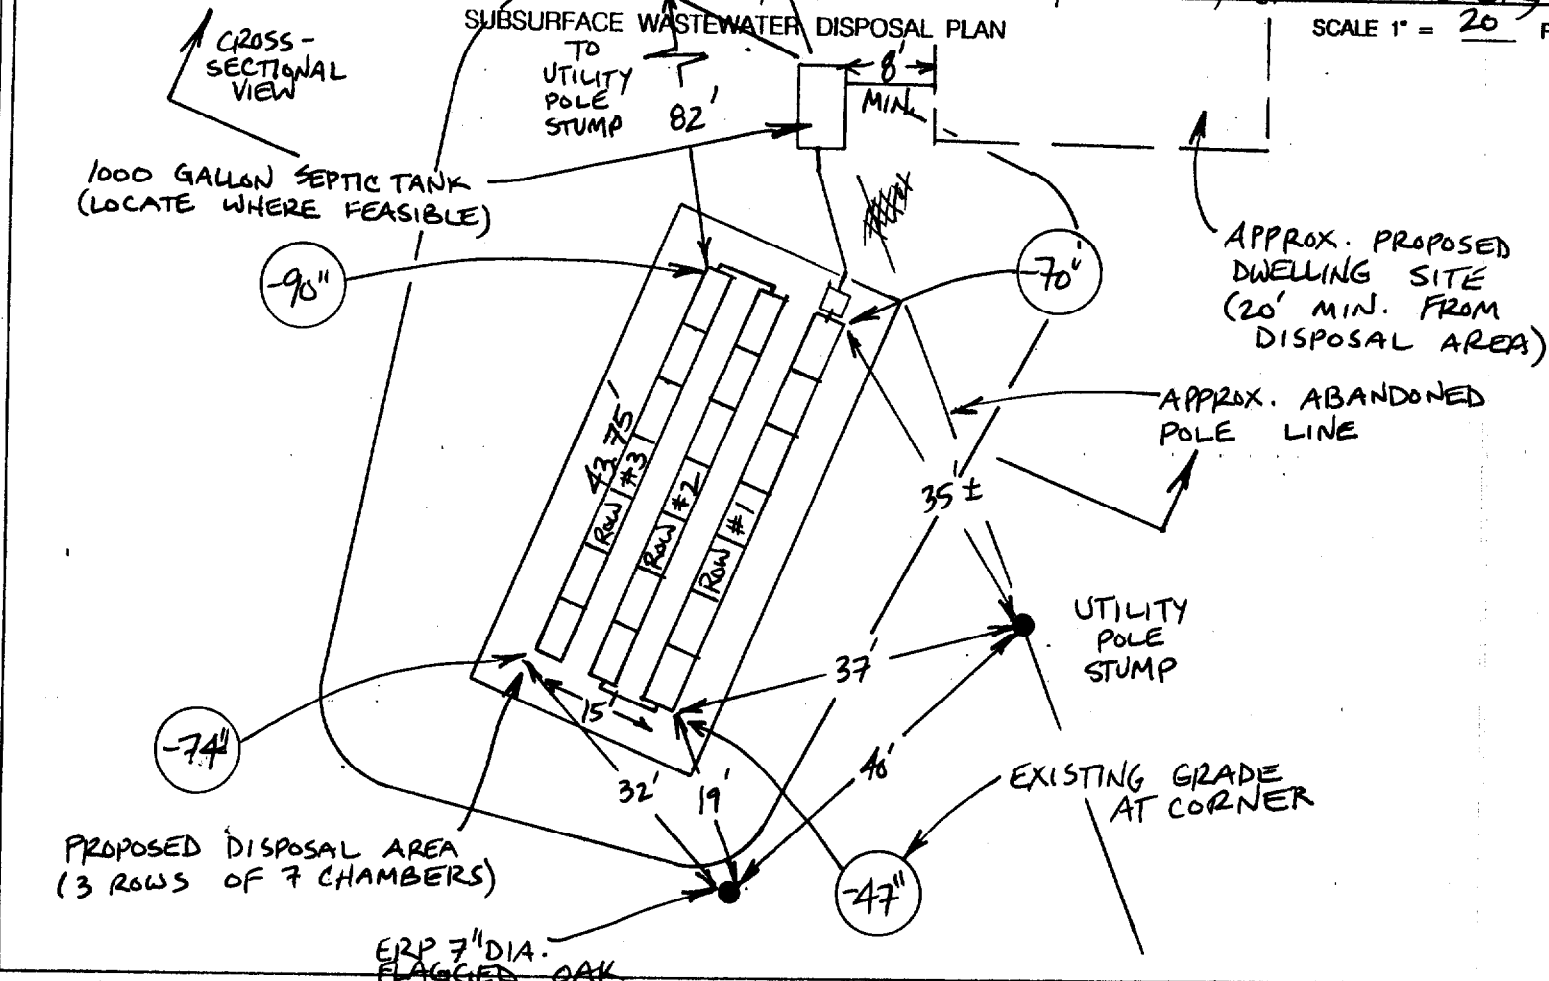 SUBSURFACE WASTEWATER DISPOSAL PLAN
SCALE 1" = 20
CROSS-
SECTIONAL
VIEW
TO
UTILITY
POLE
STUMP
82'
8'
MIN.
1000 GALLON SEPTIC TANK
(LOCATE WHERE FEASIBLE)
-90"
-70"
APPROX. PROPOSED
DWELLING SITE
(20' MIN. FROM
DISPOSAL AREA)
APPROX. ABANDONED
POLE LINE
43.75'
ROW #3
ROW #2
ROW #1
35'±
UTILITY
POLE
STUMP
37'
15'
-74"
32'
19'
40'
EXISTING GRADE
AT CORNER
PROPOSED DISPOSAL AREA
(3 ROWS OF 7 CHAMBERS)
-47"
ERP 7" DIA.
FLAGGED OAK